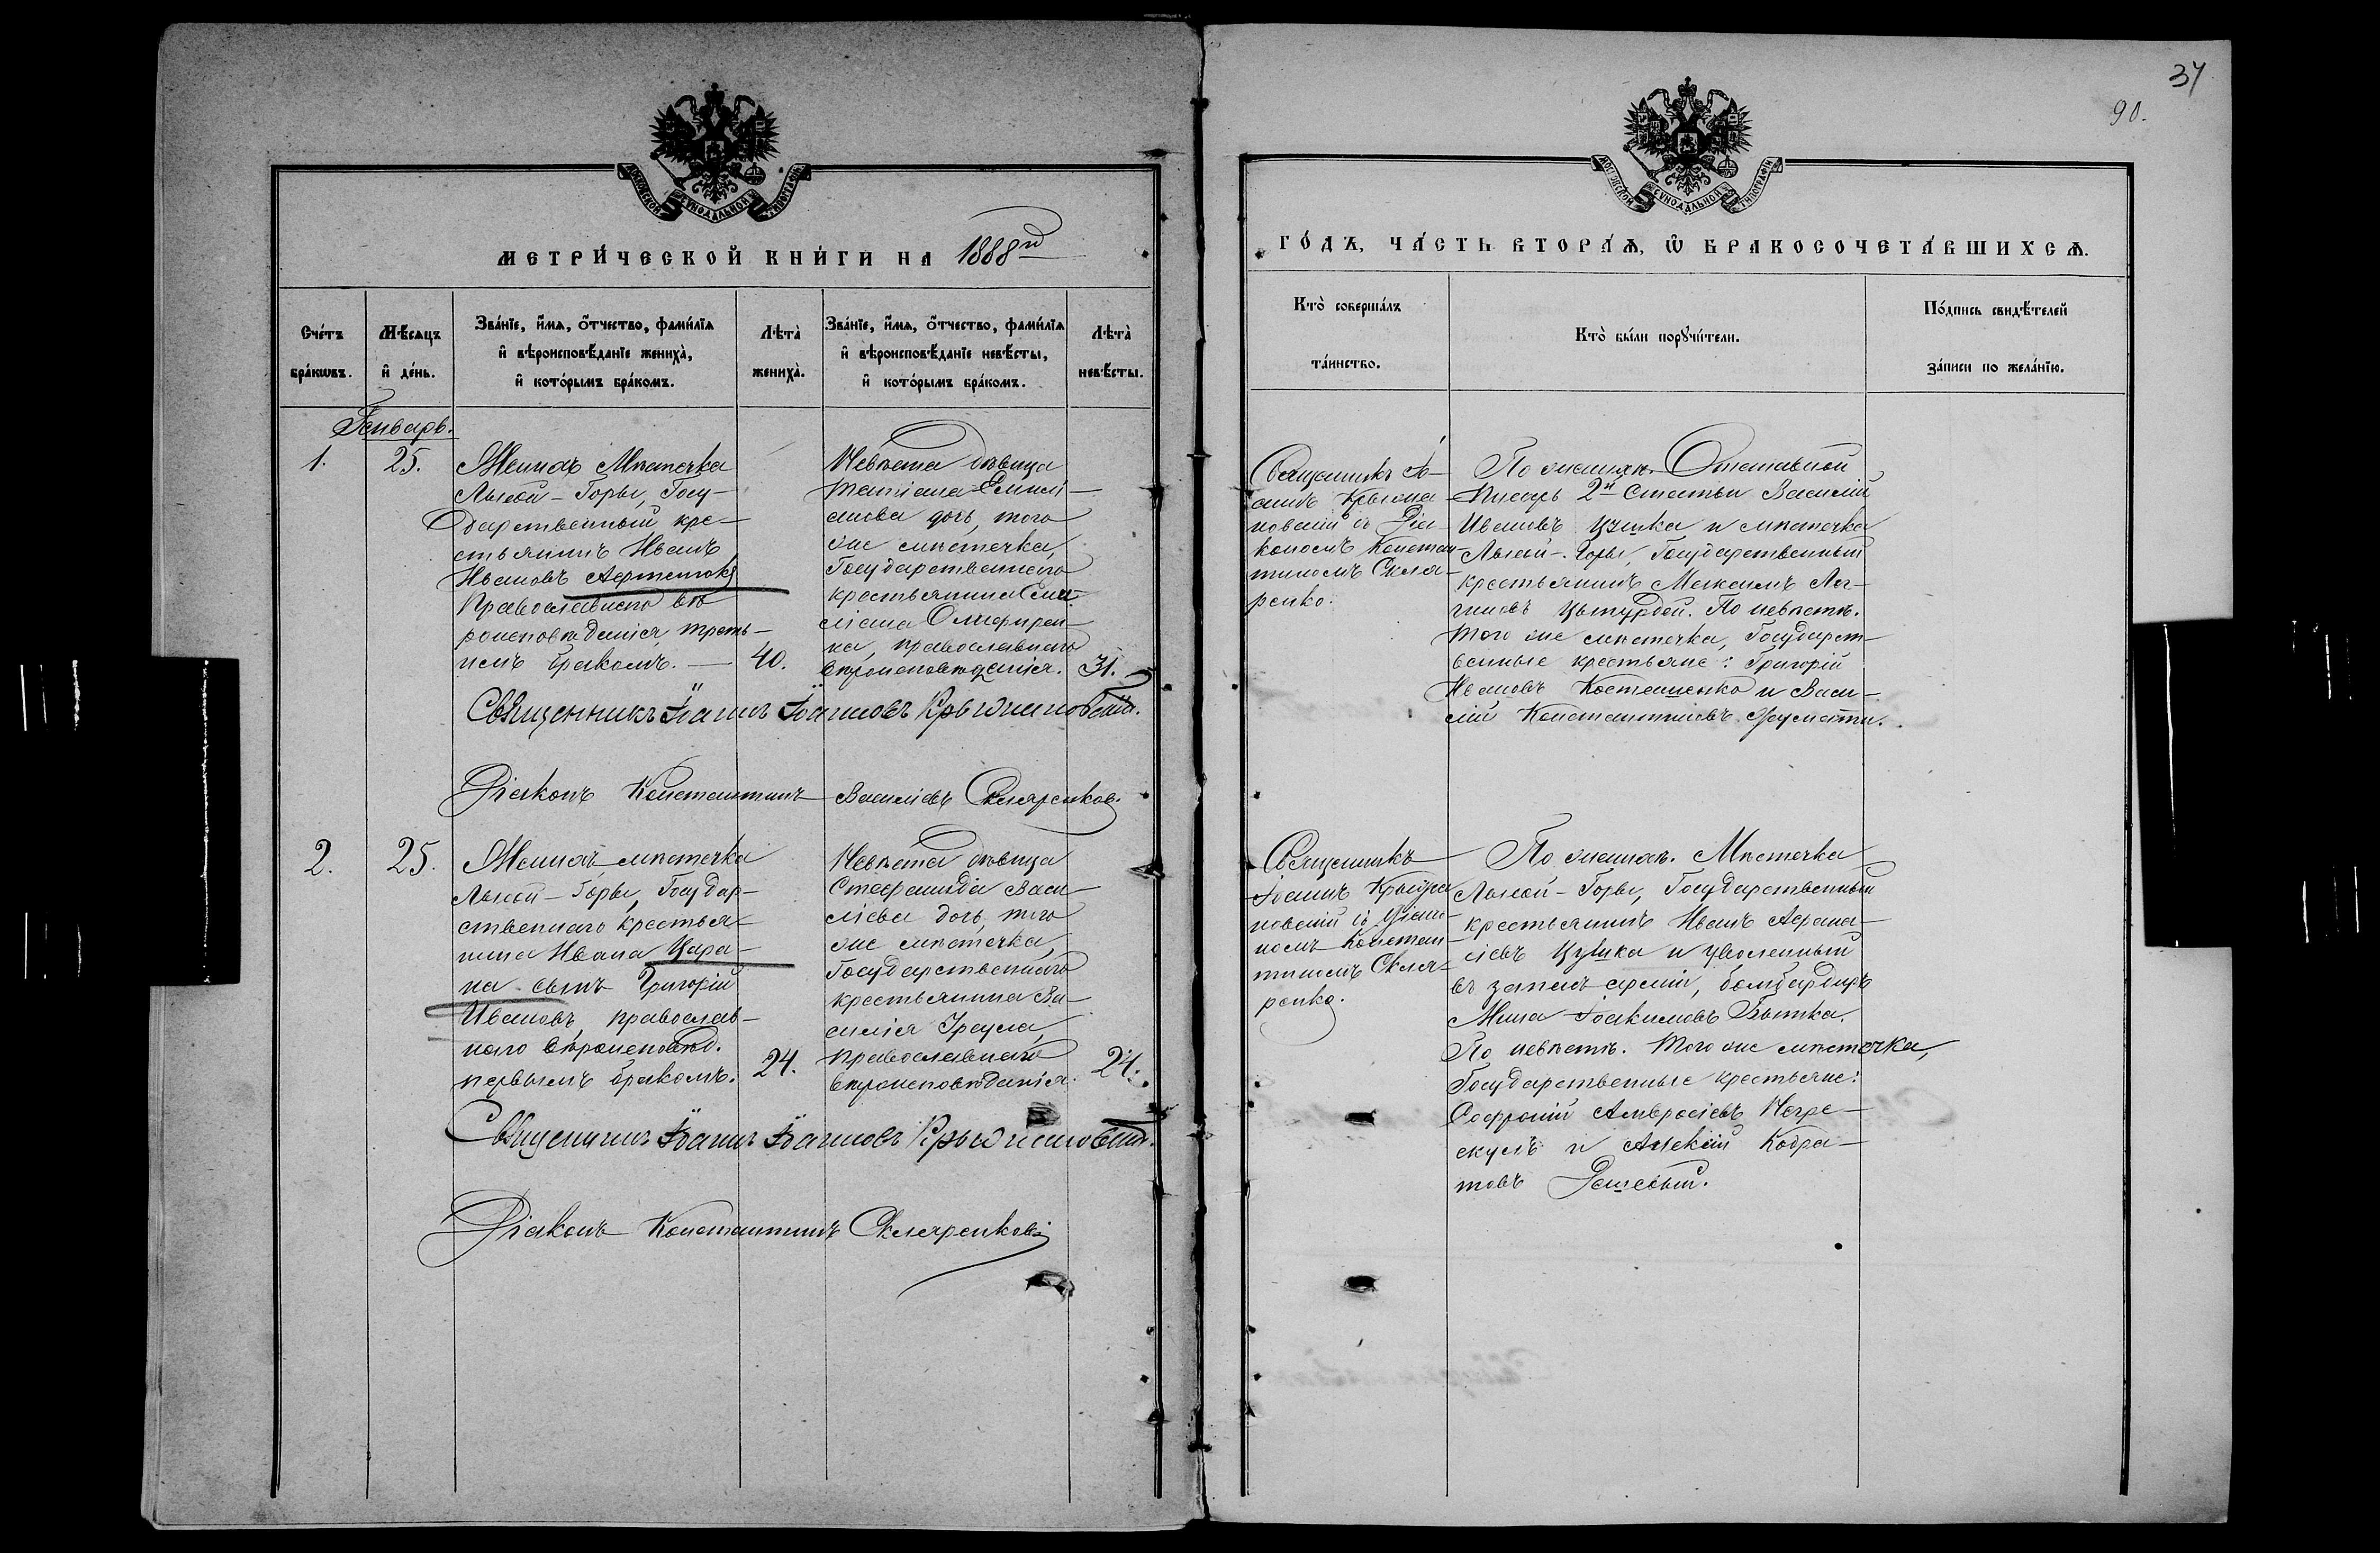 37
90.
МОСКОВСКОЙ СѴНОДАЛЬНОЙ ТИПОГРАФІИ
МЕТРИ́ЧЕСКОЙ КНИ́ГИ НА 1888й
Сче́тъ бра́кѡвъ.
Мѣ́сяцъ и҆ де́нь.
Зва́нїе, и҆́мѧ, ѻ҆́тчество, фами́лїѧ
и҆ вѣроисповѣ́данїе жениха̀,
и҆ кото́рымъ бра́комъ.
Лѣта̀ жениха̀.
Зва́нїе, и҆́мѧ, ѻ҆́тчество, фами́лїѧ
и҆ вѣроисповѣ́данїе невѣ́сты,
и҆ кото́рымъ бра́комъ.
Лѣта̀ невѣ́сты.
Генварь.
1.
25.
Женихъ Мѣстечка
Лысой-Горы, Госу-
дарственный кре-
стьянинъ Иванъ
Ивановъ
Православнаго вѣ
роисповѣданія, треть-
имъ бракомъ. —
40.
Невѣста дѣвица
Татіана Емилі-
анова дочь, того
же мѣстечка,
Государственнаго
крестьянина Еми
ліана Олифирен-
ка, православнаго
вѣроисповѣданія.
31.
Священникъ Іоаннъ Іоанновъ Крыжановскій.
Діаконъ Константинъ Василіевъ Скляренков.
2.
25.
Женихъ, мѣстечка
Лысой-Горы, Государ-
ственнаго крестья-
нина Ивана Цара-
на сынъ Григорій
Ивановъ, православ-
наго вѣроисповѣд.
первымъ бракомъ.
24.
Невѣста дѣвица
Стефанида Васи-
ліева дочь, того
же мѣстечка,
Государственнаго
крестьянина Ва-
силія Урсула,
православнаго
вѣроисповѣданія.
24.
Священникъ Іоаннъ Іоанновъ Крыжановскій.
Діаконъ Константинъ Скляренковъ
МОСКОВСКОЙ СѴНОДАЛЬНОЙ ТИПОГРАФІИ
ГО́ДЪ, ЧА́СТЬ ВТОРА́Ѧ, Ѡ҆ БРАКОСОЧЕТА́ВШИХСѦ.
Кто̀ соверша́лъ
та́инство.
Кто̀ бы́ли порꙋчи́тели.
По́дпись свидѣ́телей
за́писи по жела́нїю.
Священникъ Іо-
аннъ Крыжа
новскій съ Діа-
кономъ Констан-
тиномъ Скля-
ренко.
По женихѣ. Отставной
Писарь 2й Статьи Василій
Ивановъ Цушка и мѣстечка
Лысой-Горы, Государственный
крестьянинъ Максимъ Лог-
гиновъ По невѣстѣ.
Того же мѣстечка, Государст-
венные крестьяне: Григорій
Ивановъ Косташенко и Васи-
лій Константиновъ
Священникъ
Іоаннъ Крыжа
новскій съ Діако-
номъ Констан-
тиномъ Скля-
ренко.
По женихѣ. Мѣстечка
Лысой-Горы, Государственный
крестьянинъ Иванъ Афана-
сіевъ Цушка и уволенный
въ запасъ арміи, бомбардиръ
Іоакимовъ
По невѣстѣ. Того же мѣстечка,
Государственные крестьяне:
Софроній Амвросіевъ Негре-
скулъ и Алексій Кодра-
товъ